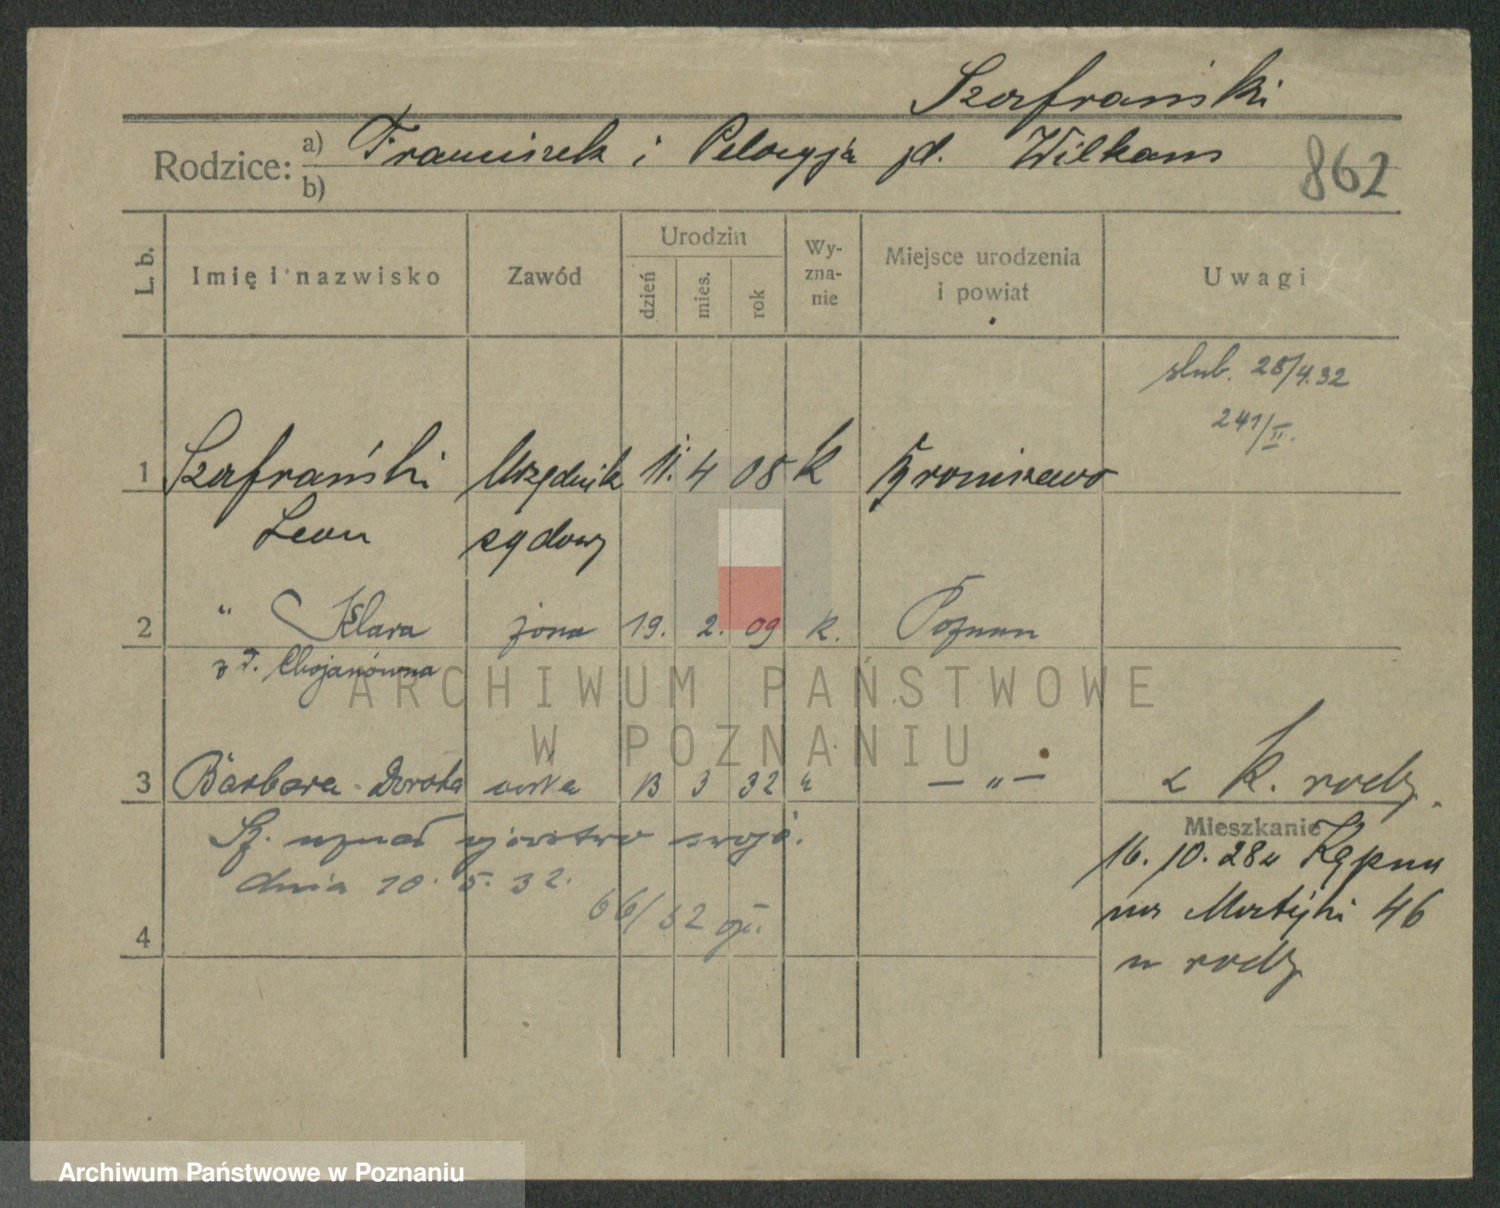 Szafrański
Rodzice: a) Franciszek i Pelagja
b)
862
L. b.
Imię i nazwisko
Zawód
Urodzin
dzień
mies.
rok
Wy-
zna-
nie
Miejsce urodzenia
i powiat
Uwagi
ślub. 28/4.32
241/II.
1 Szafrański Urzędnik 11. 4 08 k Gromiszewo
Leon sądowy
2 " Klara żona 19. 2. 09 k. Poznan
z d. Chojanówna
3 Barbara-Dorota córka 13 3 32 k — " — z K. rodz.
Sz. uznał ojcostwo swoje.
dnia 10. 5. 32.
66/32
4
Mieszkanie
16. 10. 28
Matejki 46
u rodz
ARCHIWUM PAŃSTWOWE
W POZNANIU
Archiwum Państwowe w Poznaniu